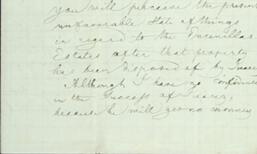 you will perceive the present
unfavorable state of things
in regard to the
Estates after that property
has been disposed of by
Although I have no confidence
in the success of
because he will give no money